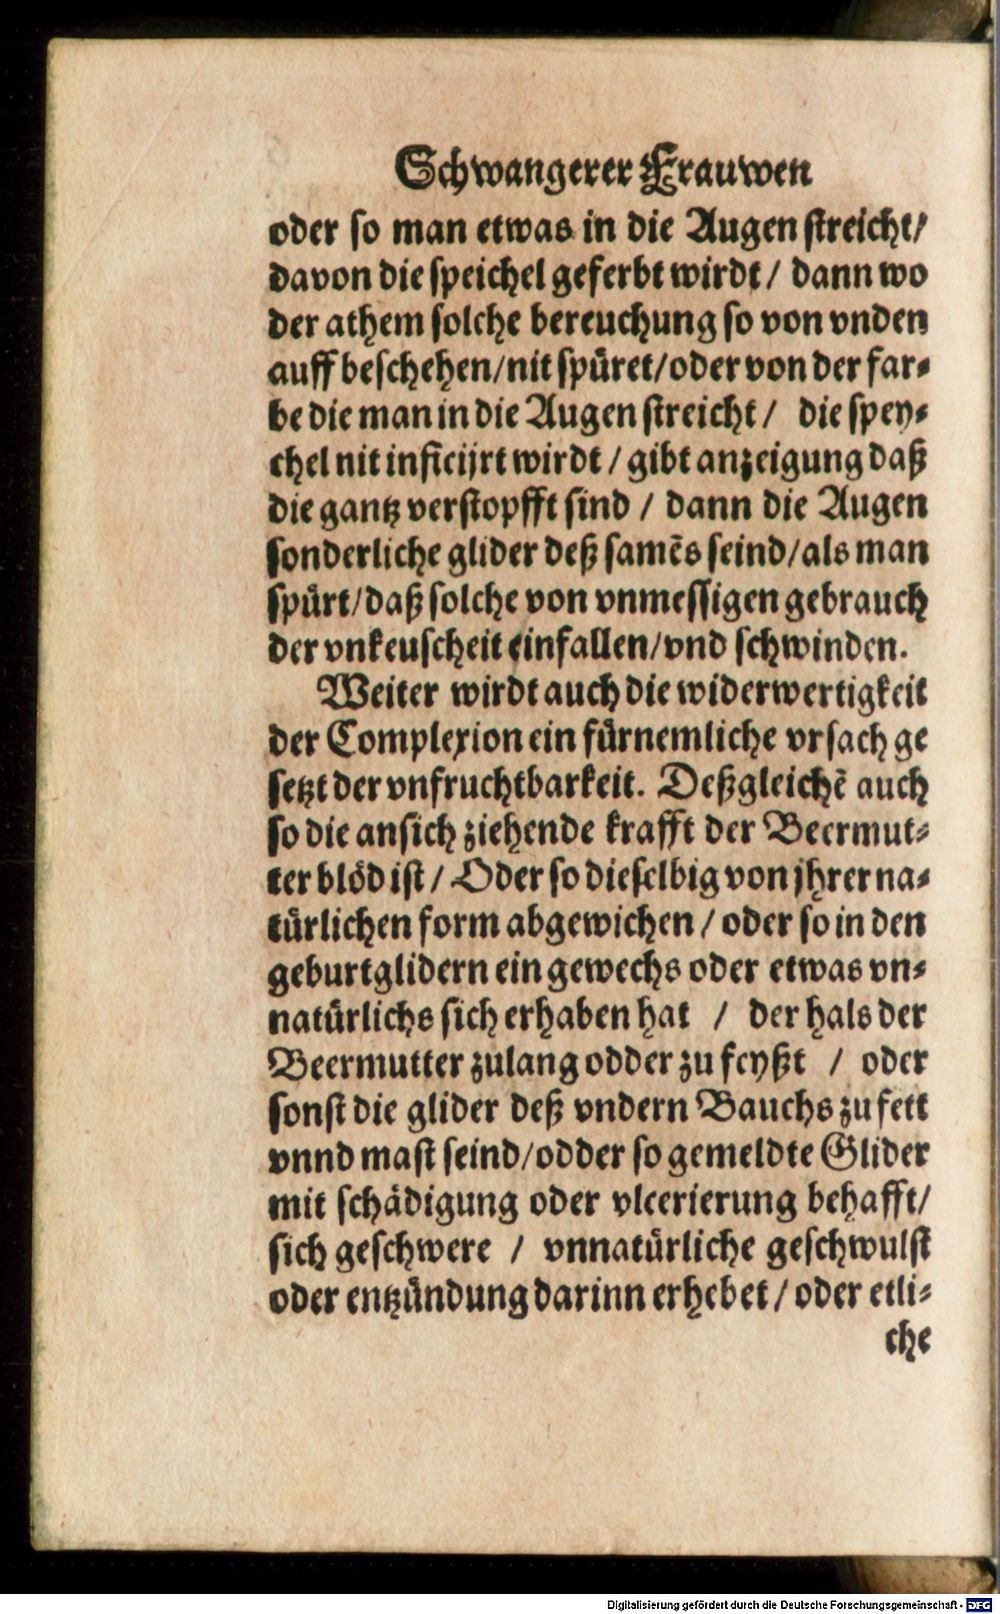 Schwangerer Frauwen
oder so man etwas in die Augen streicht/
davon die speichel geferbt wirdt / dann wo
der athem solche bereuchung so von vnden
auff beschehen/nit spüret/oder von der far⸗
be die man in die Augen streicht / die spey⸗
chel nit inficijrt wirdt / gibt anzeigung daß
die gantz verstopfft sind / dann die Augen
sonderliche glider deß samēs seind/als man
spürt/daß solche von vnmessigen gebrauch
der vnkeuscheit einfallen/vnd schwinden.
Weiter wirdt auch die widerwertigkeit
der Complexion ein fürnemliche vrsach ge
setzt der vnfruchtbarkeit. Deßgleichē auch
so die ansich ziehende krafft der Beermut⸗
ter blöd ist / Oder so dieselbig von jhrer na⸗
türlichen form abgewichen / oder so in den
geburtglidern ein gewechs oder etwas vn⸗
natürlichs sich erhaben hat / der hals der
Beermutter zulang odder zu feyßt / oder
sonst die glider deß vndern Bauchs zu fett
vnnd mast seind/odder so gemeldte Glider
mit schädigung oder vlcerierung behafft/
sich geschwere / vnnatürliche geschwulst
oder entzündung darinn erhebet / oder etli⸗
che
Digitalisierung gefördert durch die Deutsche Forschungsgemeinschaft - DFG